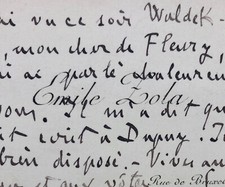 ai vu ce soir Waldek-
, mon cher de Fleury,
ui ai parlé
Emile Zola
Il m'a dit qu
it écrit à Dupuy.
bien disposé. - Vives am
et
Rue de Bruxe